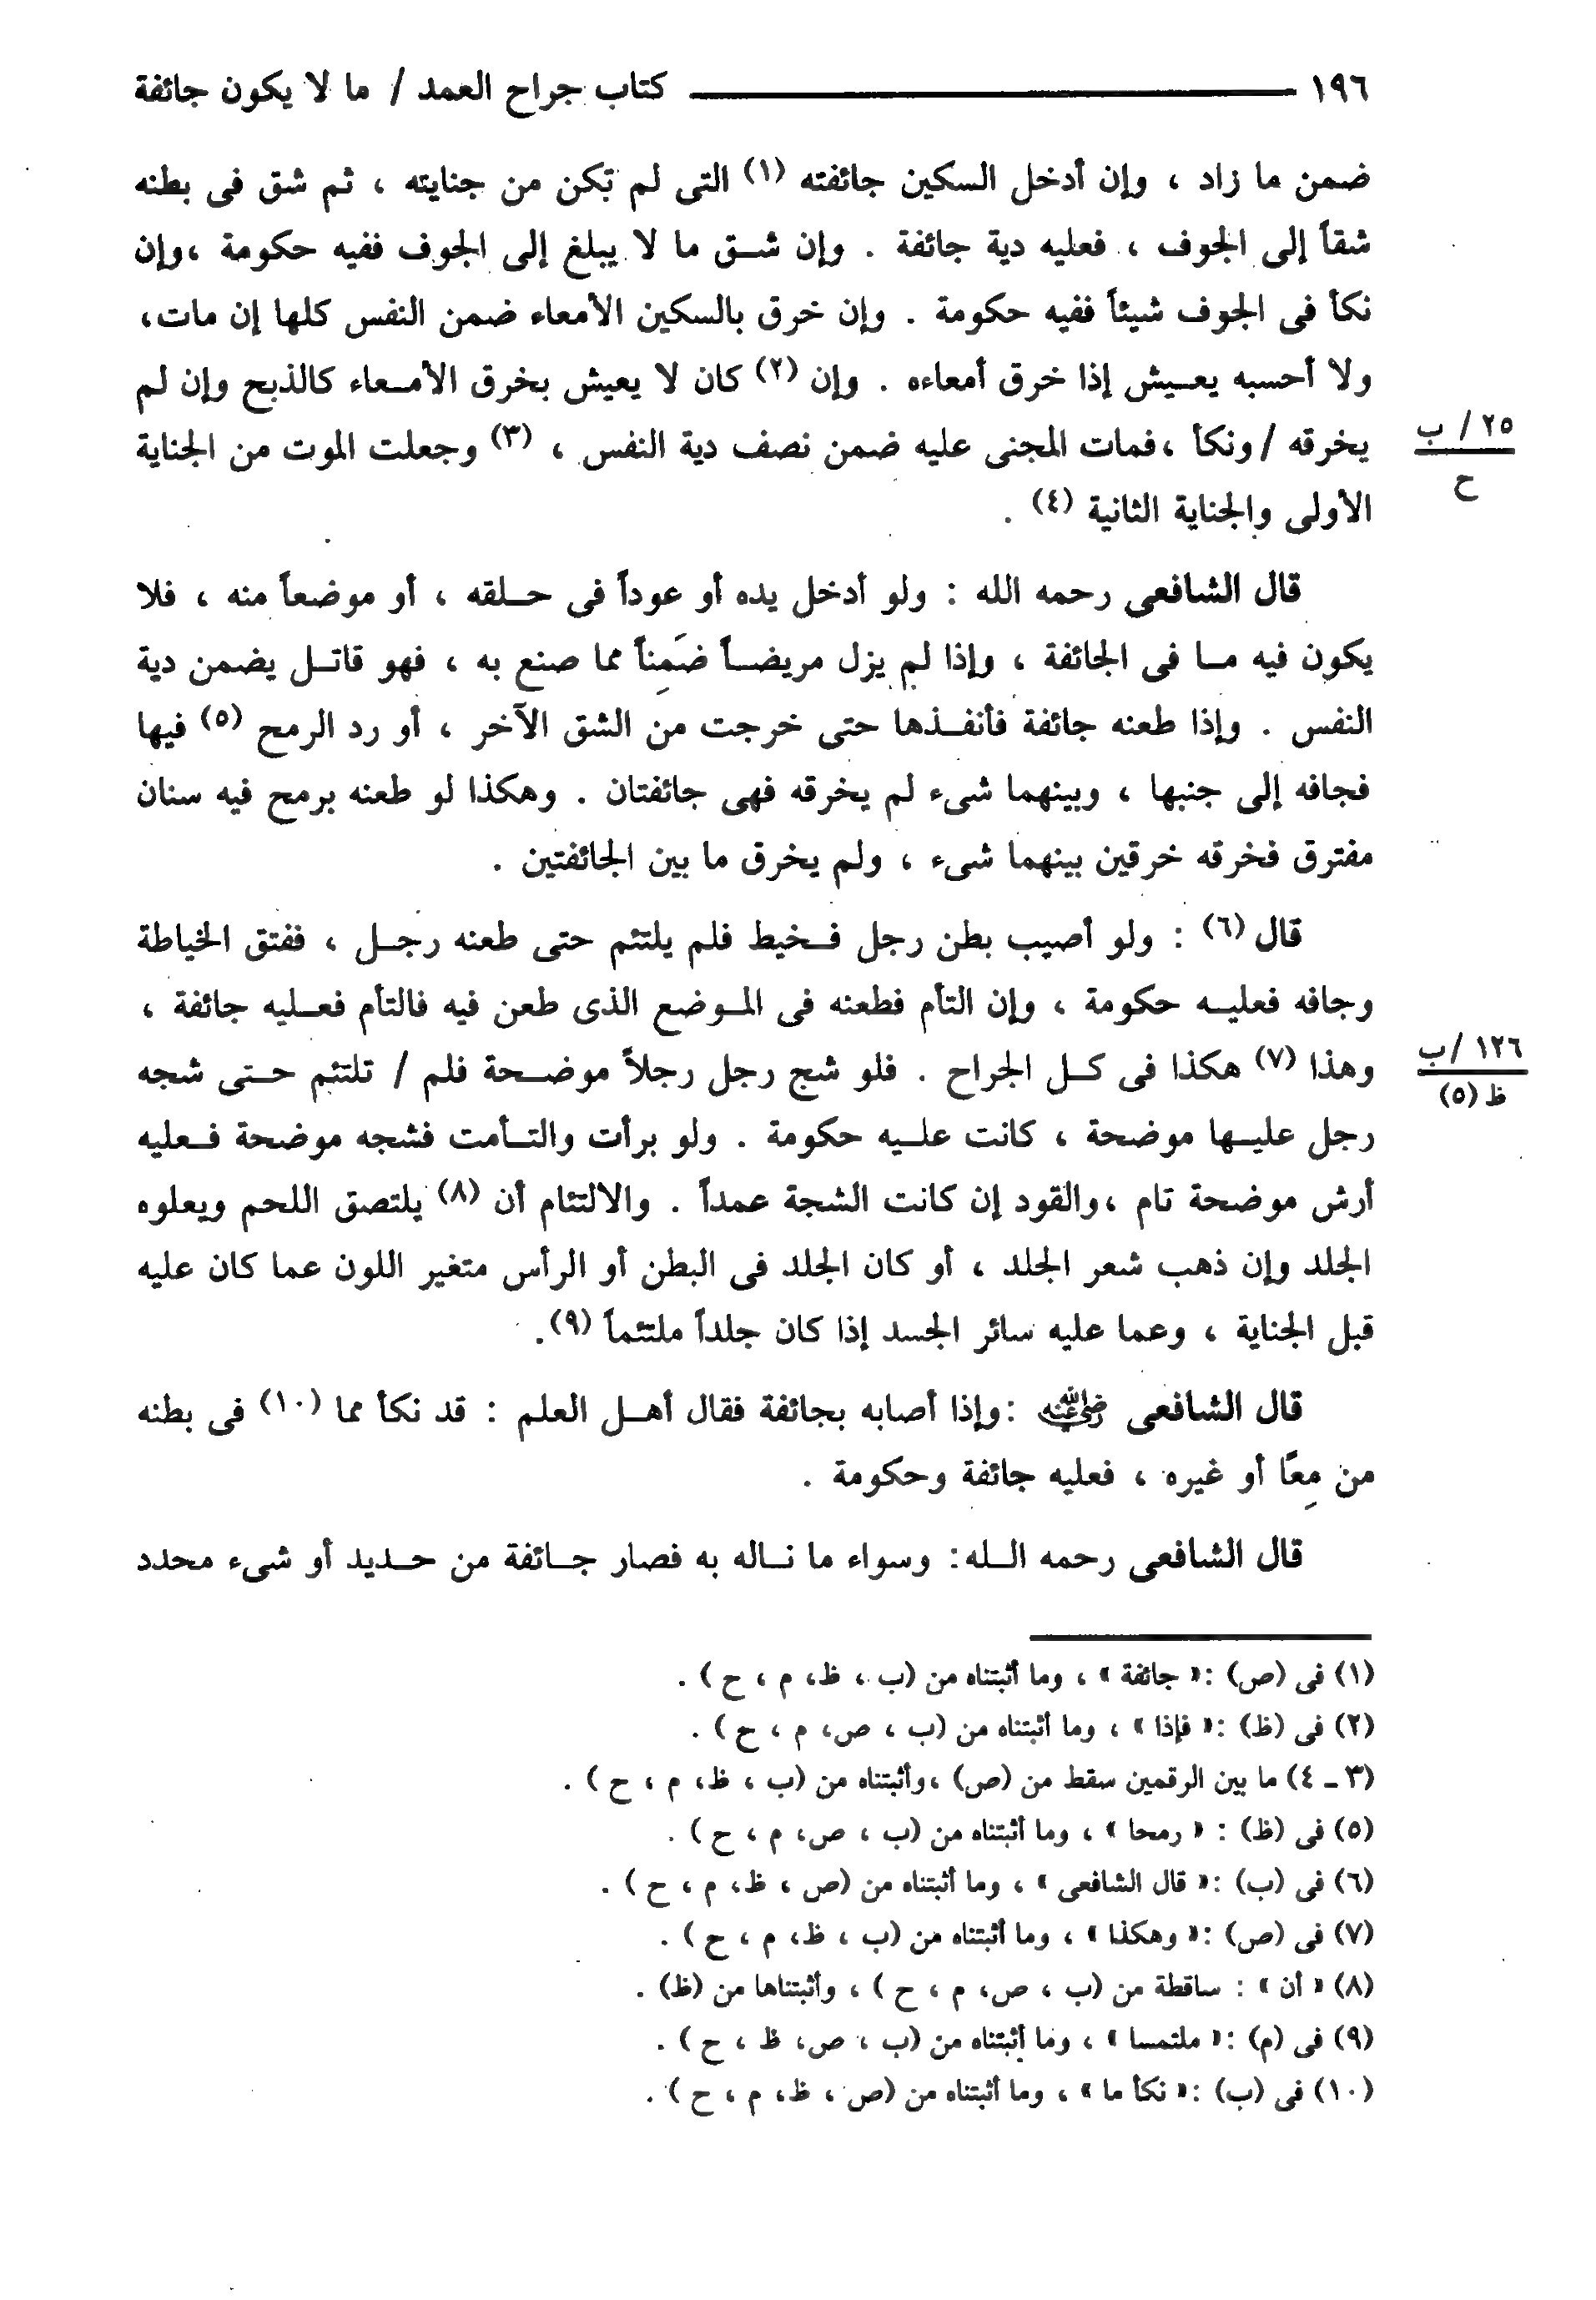 ١٩٦ كتاب جراح العمد / ما لا يكون جائفة
ضمن ما زاد ، وإن أدخل السكين جائفته (١) التى لم تكن من جنايته ، ثم شق فى بطنه
شقاً إلى الجوف ، فعليه دية جائفة . وإن شق ما لا يبلغ إلى الجوف ففيه حكومة ،وإن
نكأ فى الجوف شيئاً ففيه حكومة . وإن خرق بالسكين الأمعاء ضمن النفس كلها إن مات،
ولا أحسبه يعيش إذا خرق أمعاءه . وإن (٢) كان لا يعيش بخرق الأمعاء كالذبح وإن لم
يخرقه / ونكأ ،فمات المجنى عليه ضمن نصف دية النفس ، (٣) وجعلت الموت من الجناية
٢٥ / ب
ح
الأولى والجناية الثانية (٤) .
قال الشافعى رحمه الله : ولو أدخل يده أو عوداً فى حلقه ، أو موضعاً منه ، فلا
يكون فيه ما فى الجائفة ، وإذا لم يزل مريضاً ضَمِناً مما صنع به ، فهو قاتل يضمن دية
النفس . وإذا طعنه جائفة فأنفذها حتى خرجت من الشق الآخر ، أو رد الرمح (٥) فيها
فجافه إلى جنبها ، وبينهما شىء لم يخرقه فهى جائفتان . وهكذا لو طعنه برمح فيه سنان
مفترق فخرقه خرقين بينهما شىء ، ولم يخرق ما بين الجائفتين .
قال (٦) : ولو أصيب بطن رجل فخيط فلم يلتئم حتى طعنه رجل ، ففتق الخياطة
وجافه فعليه حكومة ، وإن التأم فطعنه فى الموضع الذى طعن فيه فالتأم فعليه جائفة ،
وهذا (٧) هكذا فى كل الجراح . فلو شج رجل رجلاً موضحة فلم / تلتئم حتى شجه
١٢٦ / ب
ظ (٥)
رجل عليها موضحة ، كانت عليه حكومة . ولو برأت والتأمت فشجه موضحة فعليه
أرش موضحة تام ،والقود إن كانت الشجة عمداً . والالتئام أن (٨) يلتصق اللحم ويعلوه
الجلد وإن ذهب شعر الجلد ، أو كان الجلد فى البطن أو الرأس متغير اللون عما كان عليه
قبل الجناية ، وعما عليه سائر الجسد إذا كان جلداً ملتئماً (٩).
قال الشافعى رضي الله عنه :وإذا أصابه بجائفة فقال أهل العلم : قد نكأ مما (١٠) فى بطنه
من مِعًا أو غيره ، فعليه جائفة وحكومة .
قال الشافعى رحمه الله: وسواء ما ناله به فصار جائفة من حديد أو شىء محدد
(١) فى (ص) :« جائفة » ، وما أثبتناه من (ب ، ظ، م ، ح ) .
(٢) فى (ظ) :« فإذا » ، وما أثبتناه من (ب ، ص، م ، ح ) .
(٣ - ٤) ما بين الرقمين سقط من (ص) ،وأثبتناه من (ب ، ظ، م ، ح ) .
(٥) فى (ظ) : « رمحا » ، وما أثبتناه من (ب ، ص، م ، ح ) .
(٦) فى (ب) :« قال الشافعى » ، وما أثبتناه من (ص ، ظ، م ، ح ) .
(٧) فى (ص) :« وهكذا » ، وما أثبتناه من (ب ، ظ، م ، ح ) .
(٨) « أن » : ساقطة من (ب ، ص، م ، ح ) ، وأثبتناها من (ظ) .
(٩) فى (م) :« ملتمسا » ، وما أثبتناه من (ب ، ص، ظ ، ح ) .
(١٠) فى (ب) :« نكأ ما » ، وما أثبتناه من (ص ، ظ، م ، ح ) .